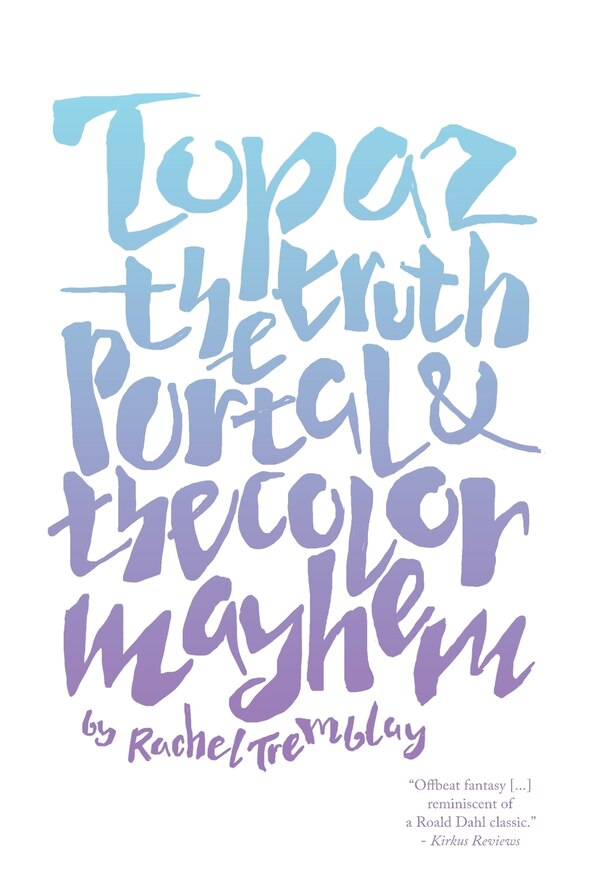 Topaz
the truth
Portal &
the color
mayhem
by Rachel Tremblay
“Offbeat fantasy [...]
reminiscent of
a Roald Dahl classic.”
- Kirkus Reviews